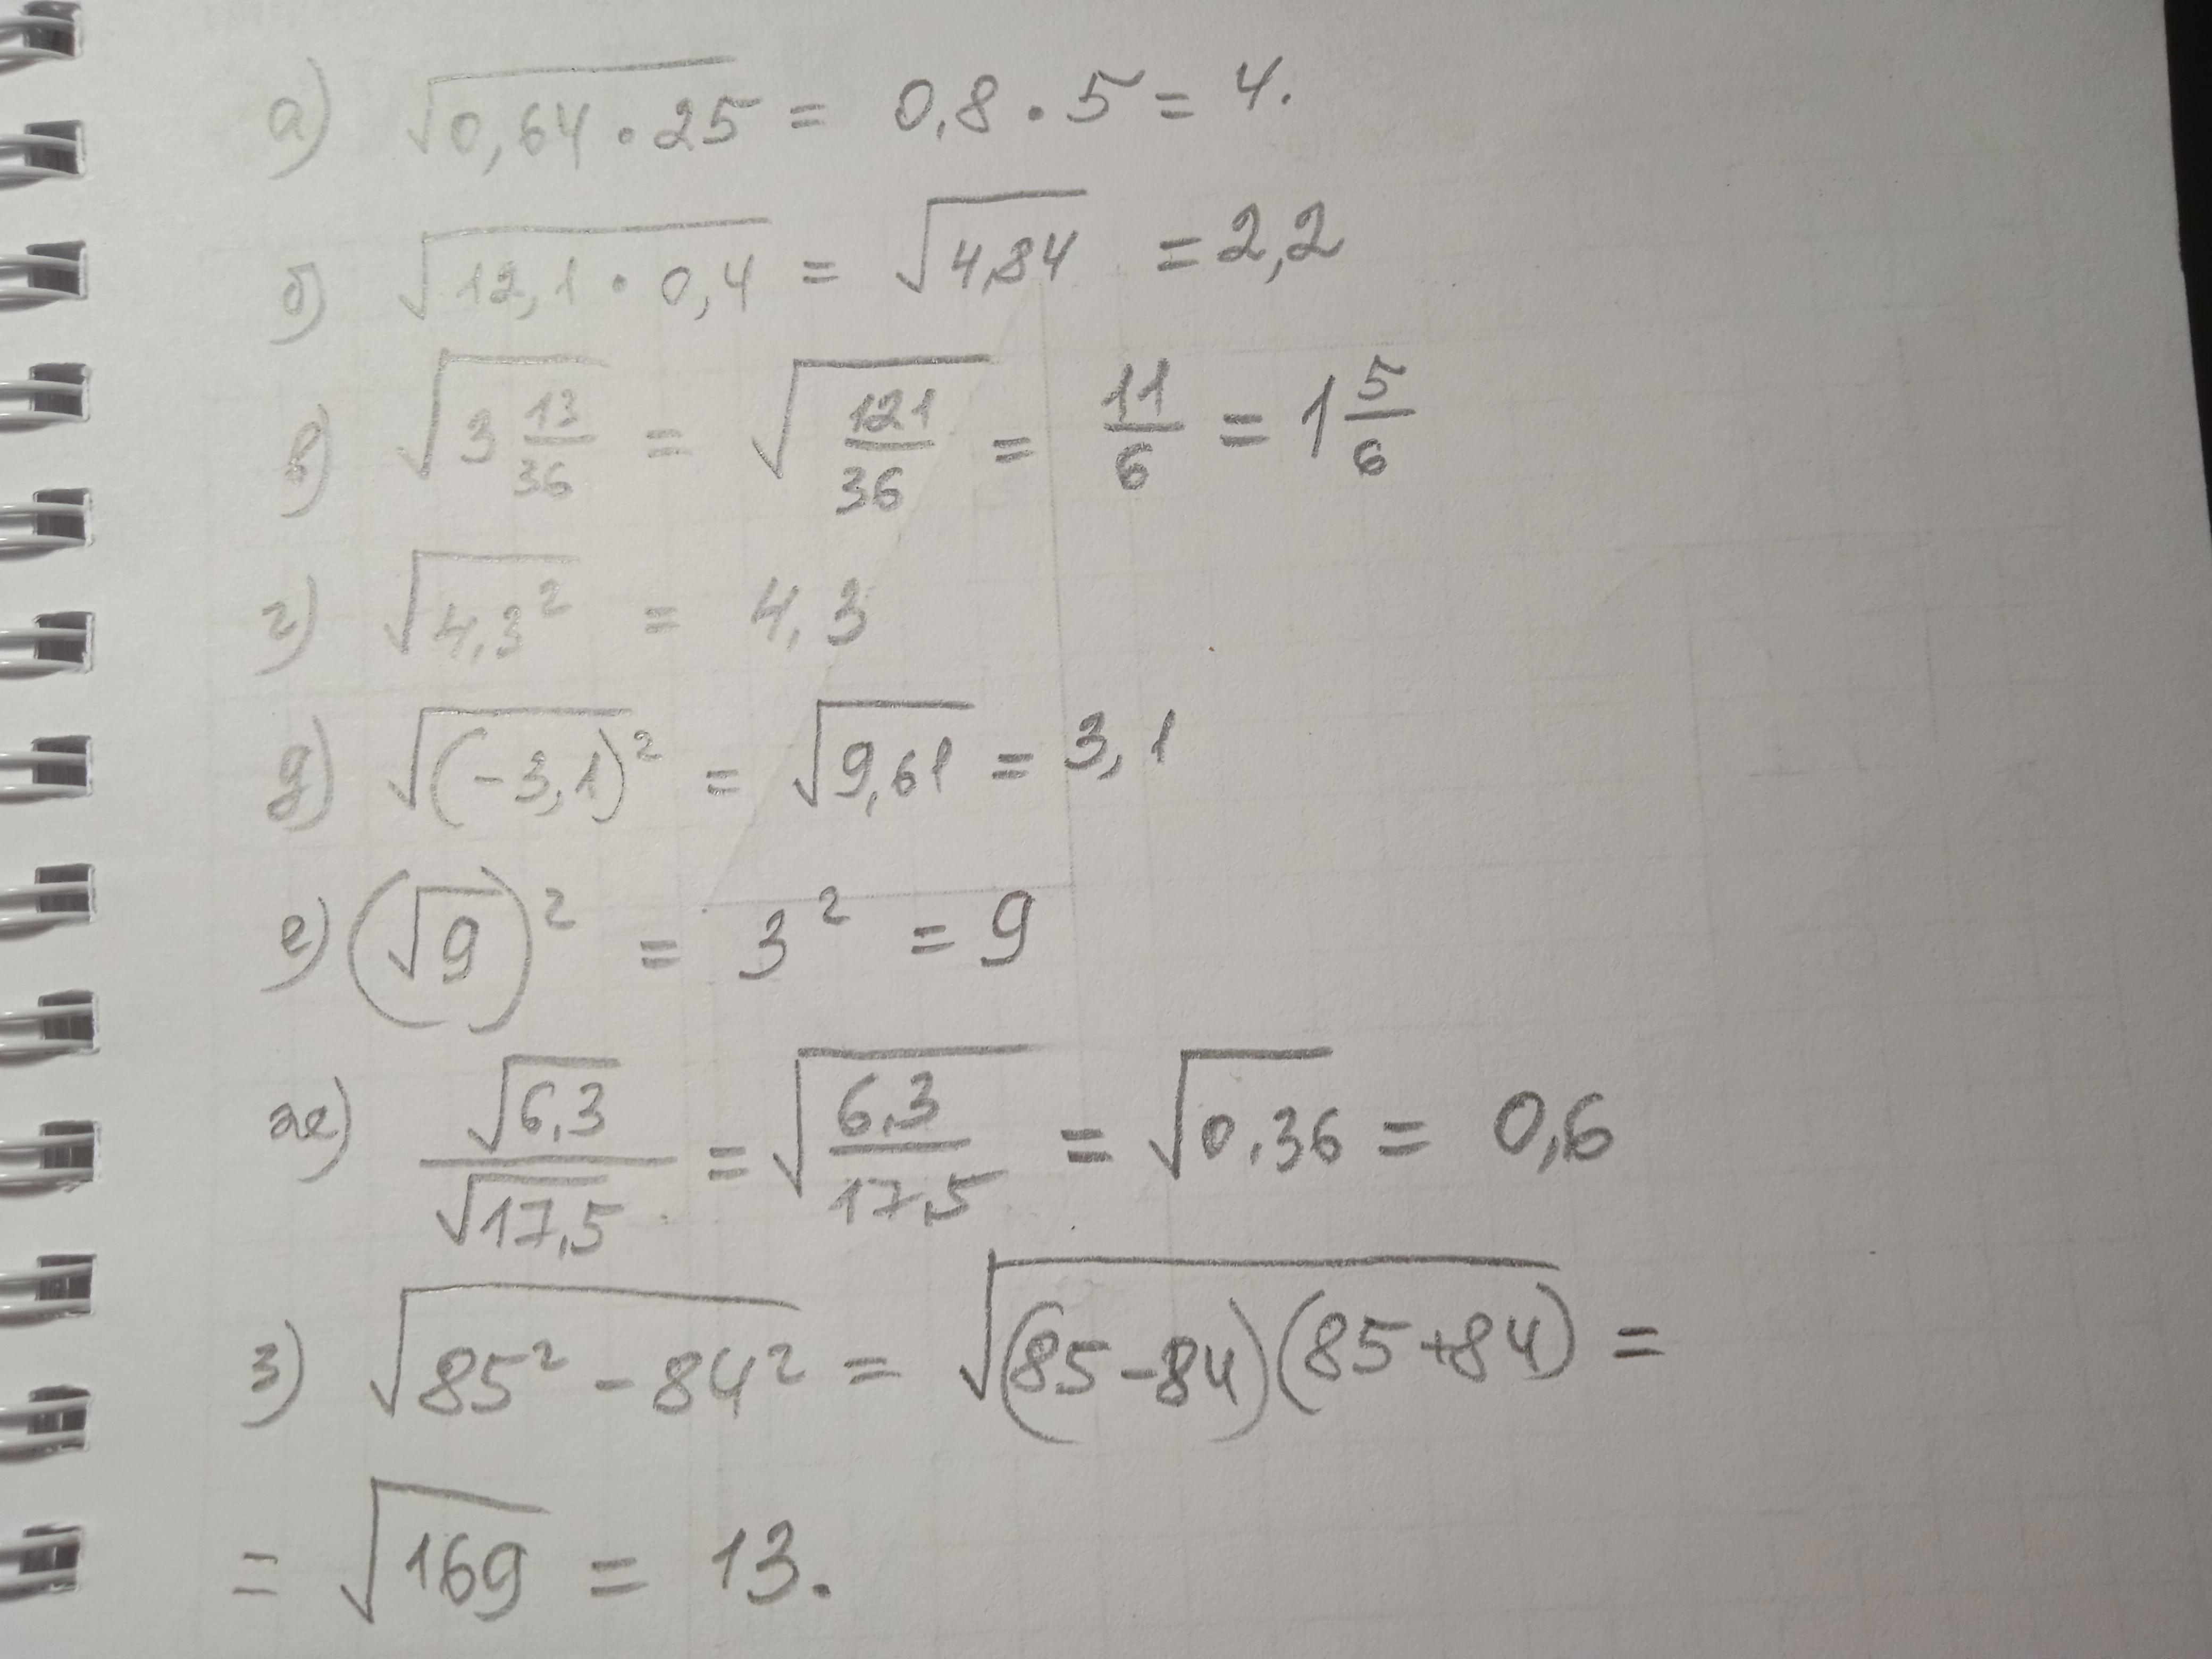 а) √0,64 · 25 = 0,8 · 5 = 4.
б) √12,1 · 0,4 = √4,84 = 2,2
в) √3 13/36 = √121/36 = 11/6 = 1 5/6
г) √4,3² = 4,3
д) √(-3,1)² = √9,61 = 3,1
е) (√9)² = 3² = 9
ж) √6,3/√17,5 = √6,3/17,5 = √0.36 = 0,6
з) √85² - 84² = √(85-84)(85+84) =
= √169 = 13.